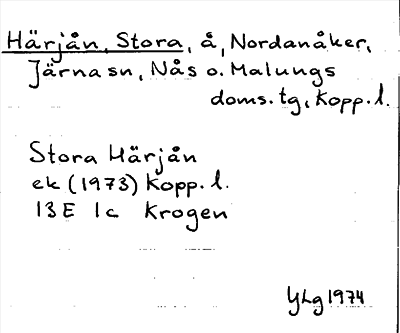 Härjån, Stora, å, Nordanåker,
Järna sn, Nås o. Malungs
doms. tg, Kopp. l.
Stora Härjån
ek (1973) Kopp. l.
13E 1c Krogen
YLg 1974